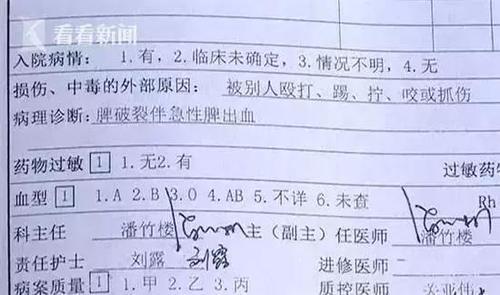 看看新闻
入院病情： 1.有，2.临床未确定，3.情况不明，4.无
损伤、中毒的外部原因： 被别人殴打、踢、拧、咬或抓伤
病理诊断：脾破裂伴急性脾出血
药物过敏 1 1.无2.有 过敏药
血型 1 1.A 2.B 3.O 4.AB 5.不详 6.未查 Rh
科主任 潘竹楼 主（副主）任医师 潘竹楼
责任护士 刘露 刘露 进修医师
病案质量 1 1.甲 2.乙 3.丙 质控医师